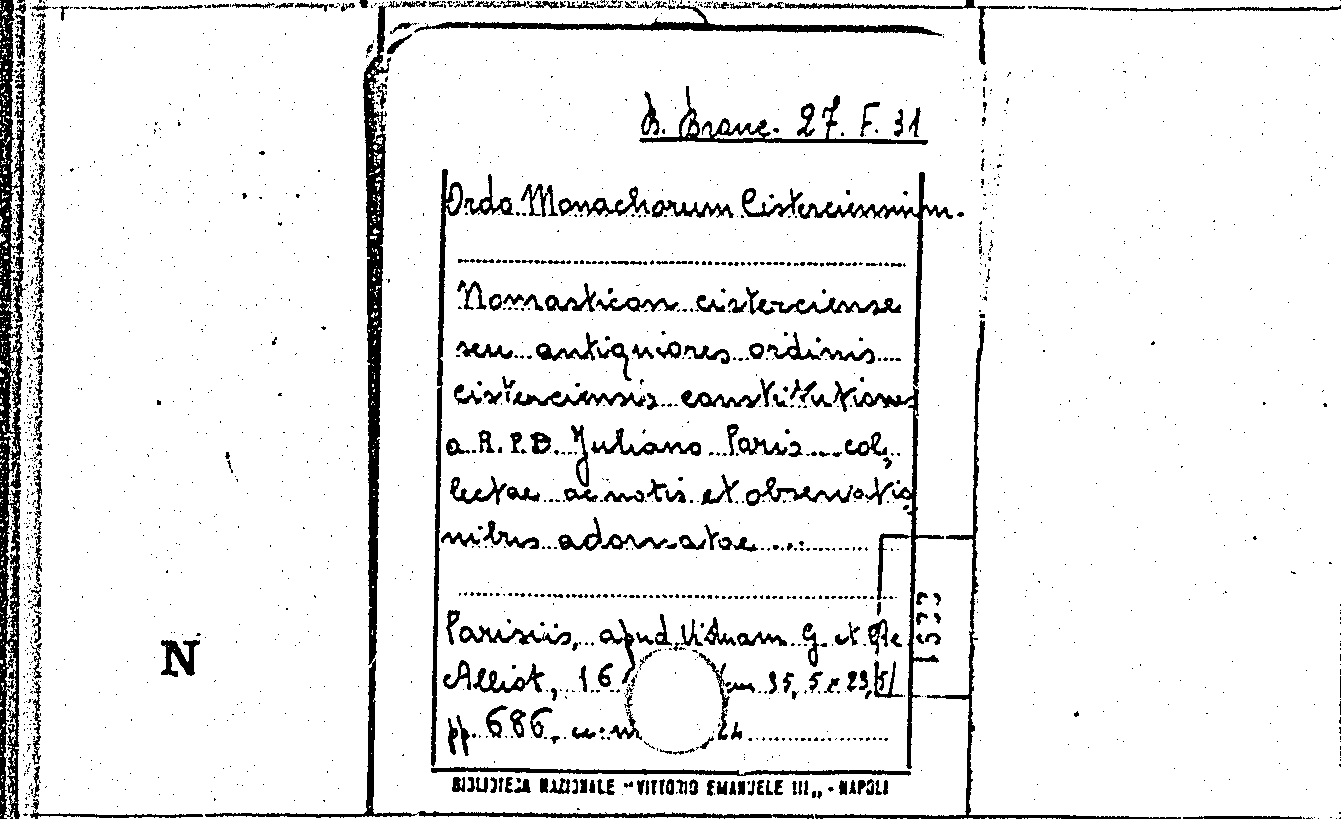 B. Branc. 27. F. 31
Ordo Monachorum Cisterciensium.
Nomasticon cisterciense
seu antiquiores ordinis
cisterciensis constitutiones
a R. P. D. Juliano Paris ... col,
lectae ac notis et observatio,
nibus adornatae ...
Parisiis, apud Viduam G. et
Alliot, 16 35, 5 x 23,5/
pp. 686,
1533
N
BIBLIOTECA NAZIONALE "VITTORIO EMANUELE III„ - NAPOLI